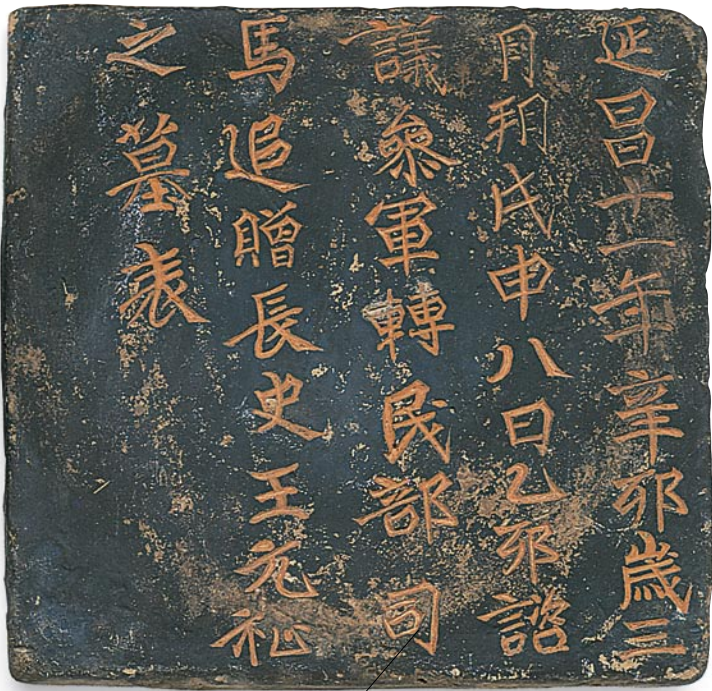 延昌十一年辛卯歲三
月朔戊申八日乙卯諮
議叅軍轉民部司
馬追贈長史王元祉
之墓表